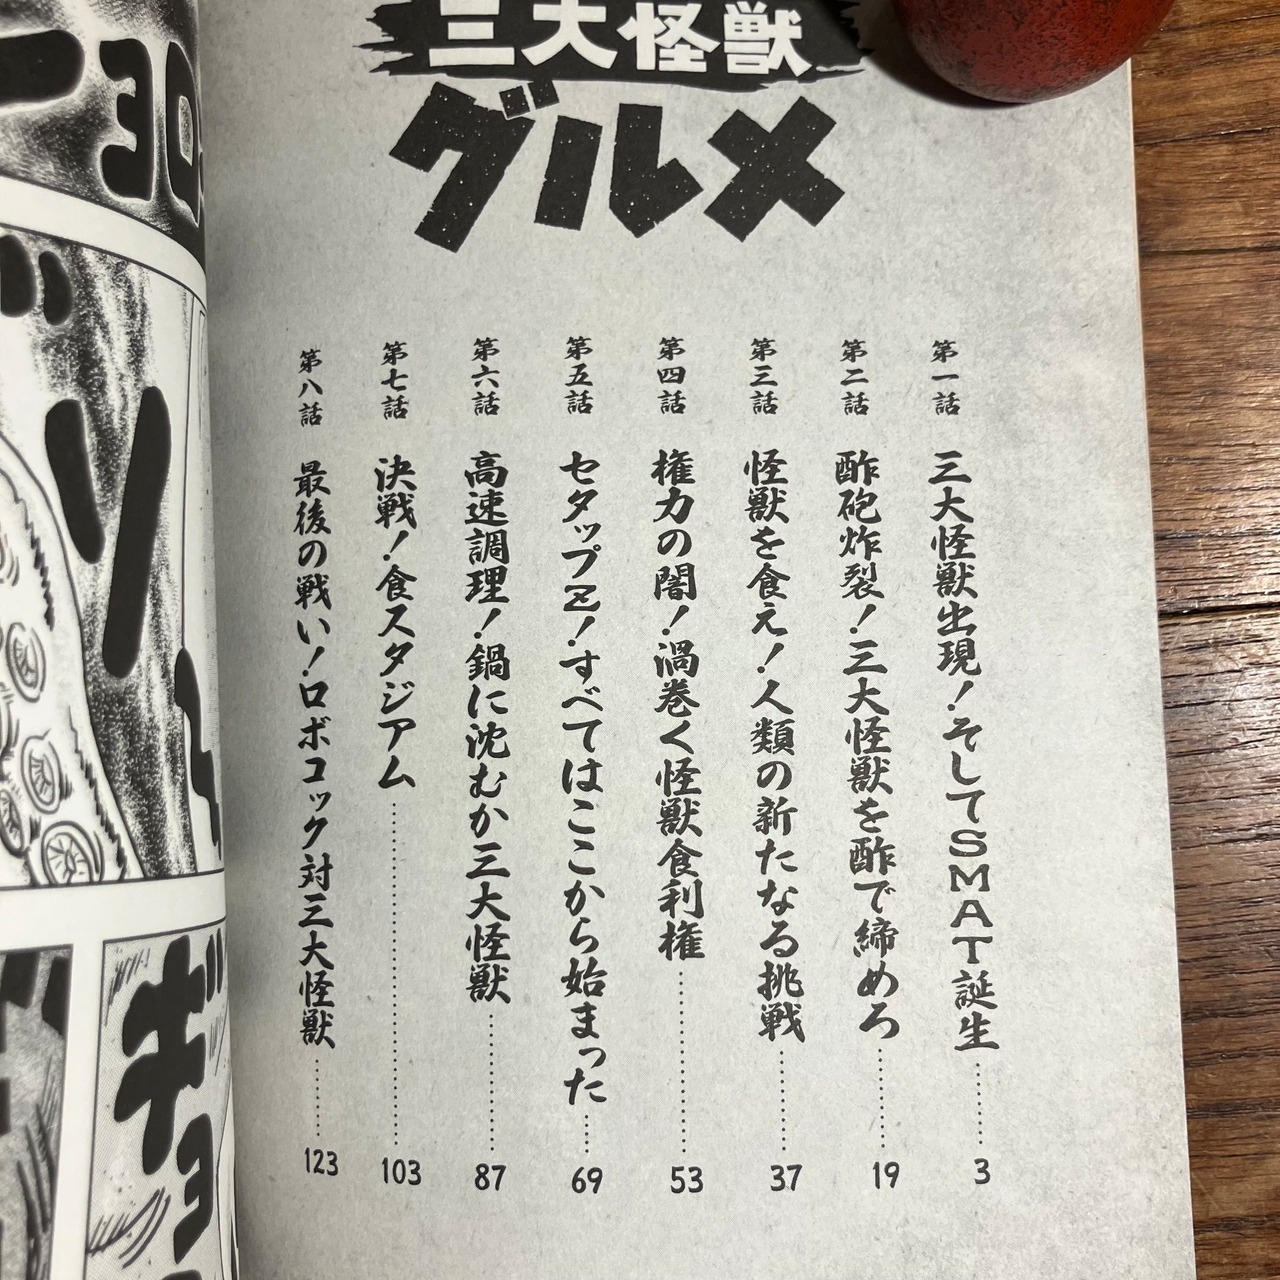 三大怪獣
グルメ
第一話 三大怪獣出現！そしてSMAT誕生……3
第二話 酢砲炸裂！三大怪獣を酢で締めろ……19
第三話 怪獣を食え！人類の新たなる挑戦……37
第四話 権力の闇！渦巻く怪獣食利権……53
第五話 セタップZ！すべてはここから始まった……69
第六話 高速調理！鍋に沈むか三大怪獣……87
第七話 決戦！食スタジアム……103
第八話 最後の戦い！ロボコック対三大怪獣……123
ギョ